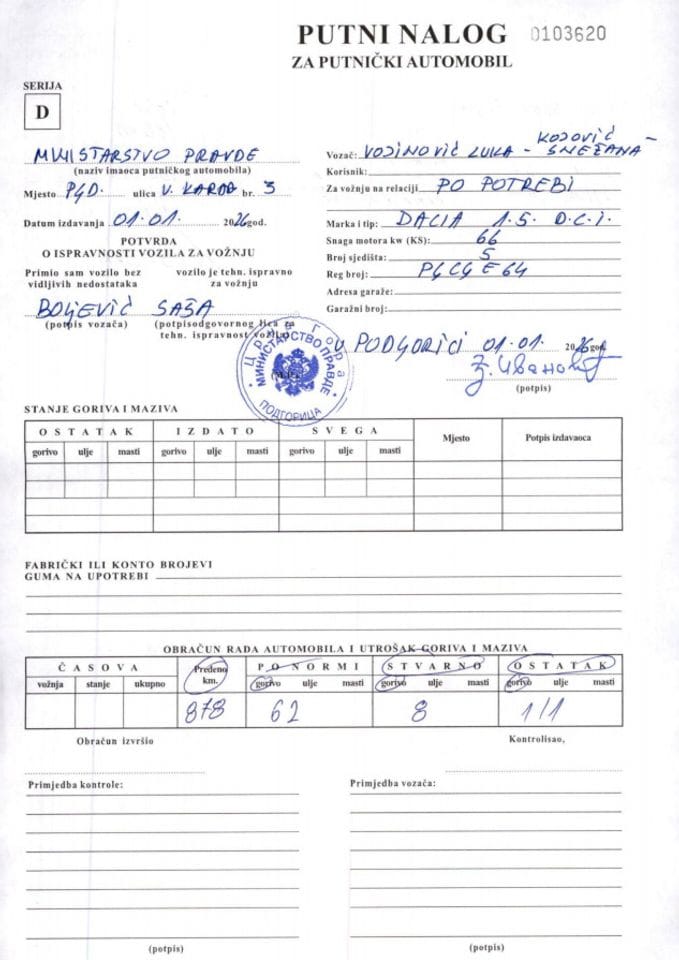 PUTNI NALOG 0103620
ZA PUTNIČKI AUTOMOBIL
SERIJA
D
MINISTARSTVO PRAVDE
(naziv imaoca putničkog automobila)
Mjesto PGD. ulica V. KARAD br. 3
Datum izdavanja 01.01. 2026 god.
POTVRDA
O ISPRAVNOSTI VOZILA ZA VOŽNJU
Primio sam vozilo bez vozilo je tehn. ispravno
vidljivih nedostataka za vožnju
BOLJEVIĆ SAŠA
(potpis vozača) (potpisodgovornog lica za
tehn. ispravnost vozila)
KOJOVIĆ
Vozač: VOJINOVIĆ LUKA - SNEŽANA -
Korisnik:
Za vožnju na relaciji PO POTREBI
Marka i tip: DACIA 1.5. D.C.I.
Snaga motora kw (KS): 66
Broj sjedišta: 5
Reg broj: PGCGE64
Adresa garaže:
Garažni broj:
U PODGORICI 01.01. 2026 god.
(potpis)
Црна Гора
МИНИСТАРСТВО ПРАВДЕ
ПОДГОРИЦА
STANJE GORIVA I MAZIVA
OSTATAK IZDATO SVEGA Mjesto Potpis izdavaoca
gorivo ulje masti gorivo ulje masti gorivo ulje masti
FABRIČKI ILI KONTO BROJEVI
GUMA NA UPOTREBI
OBRAČUN RADA AUTOMOBILA I UTROŠAK GORIVA I MAZIVA
ČASOVA Pređeno km. PO NORMI STVARNO OSTATAK
vožnja stanje ukupno gorivo ulje masti gorivo ulje masti gorivo ulje masti
878 62 8 1/1
Obračun izvršio Kontrolisao,
Primjedba kontrole: Primjedba vozača:
(potpis) (potpis)